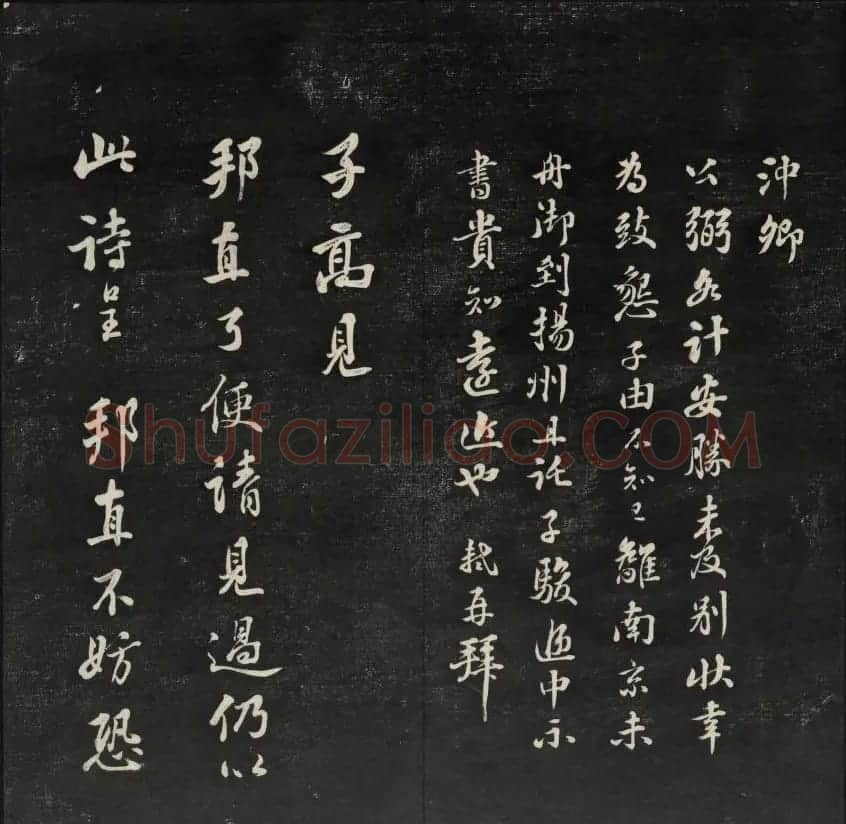 沖卿
公弼各計安勝未及別狀幸
為致懇子由不知已離南京未
舟御到揚州且託子駿遞中示
書貴知遠近也軾再拜
子高見
邦直了便請見過仍以
此詩呈 邦直不妨恐
Shufaziliao.COM